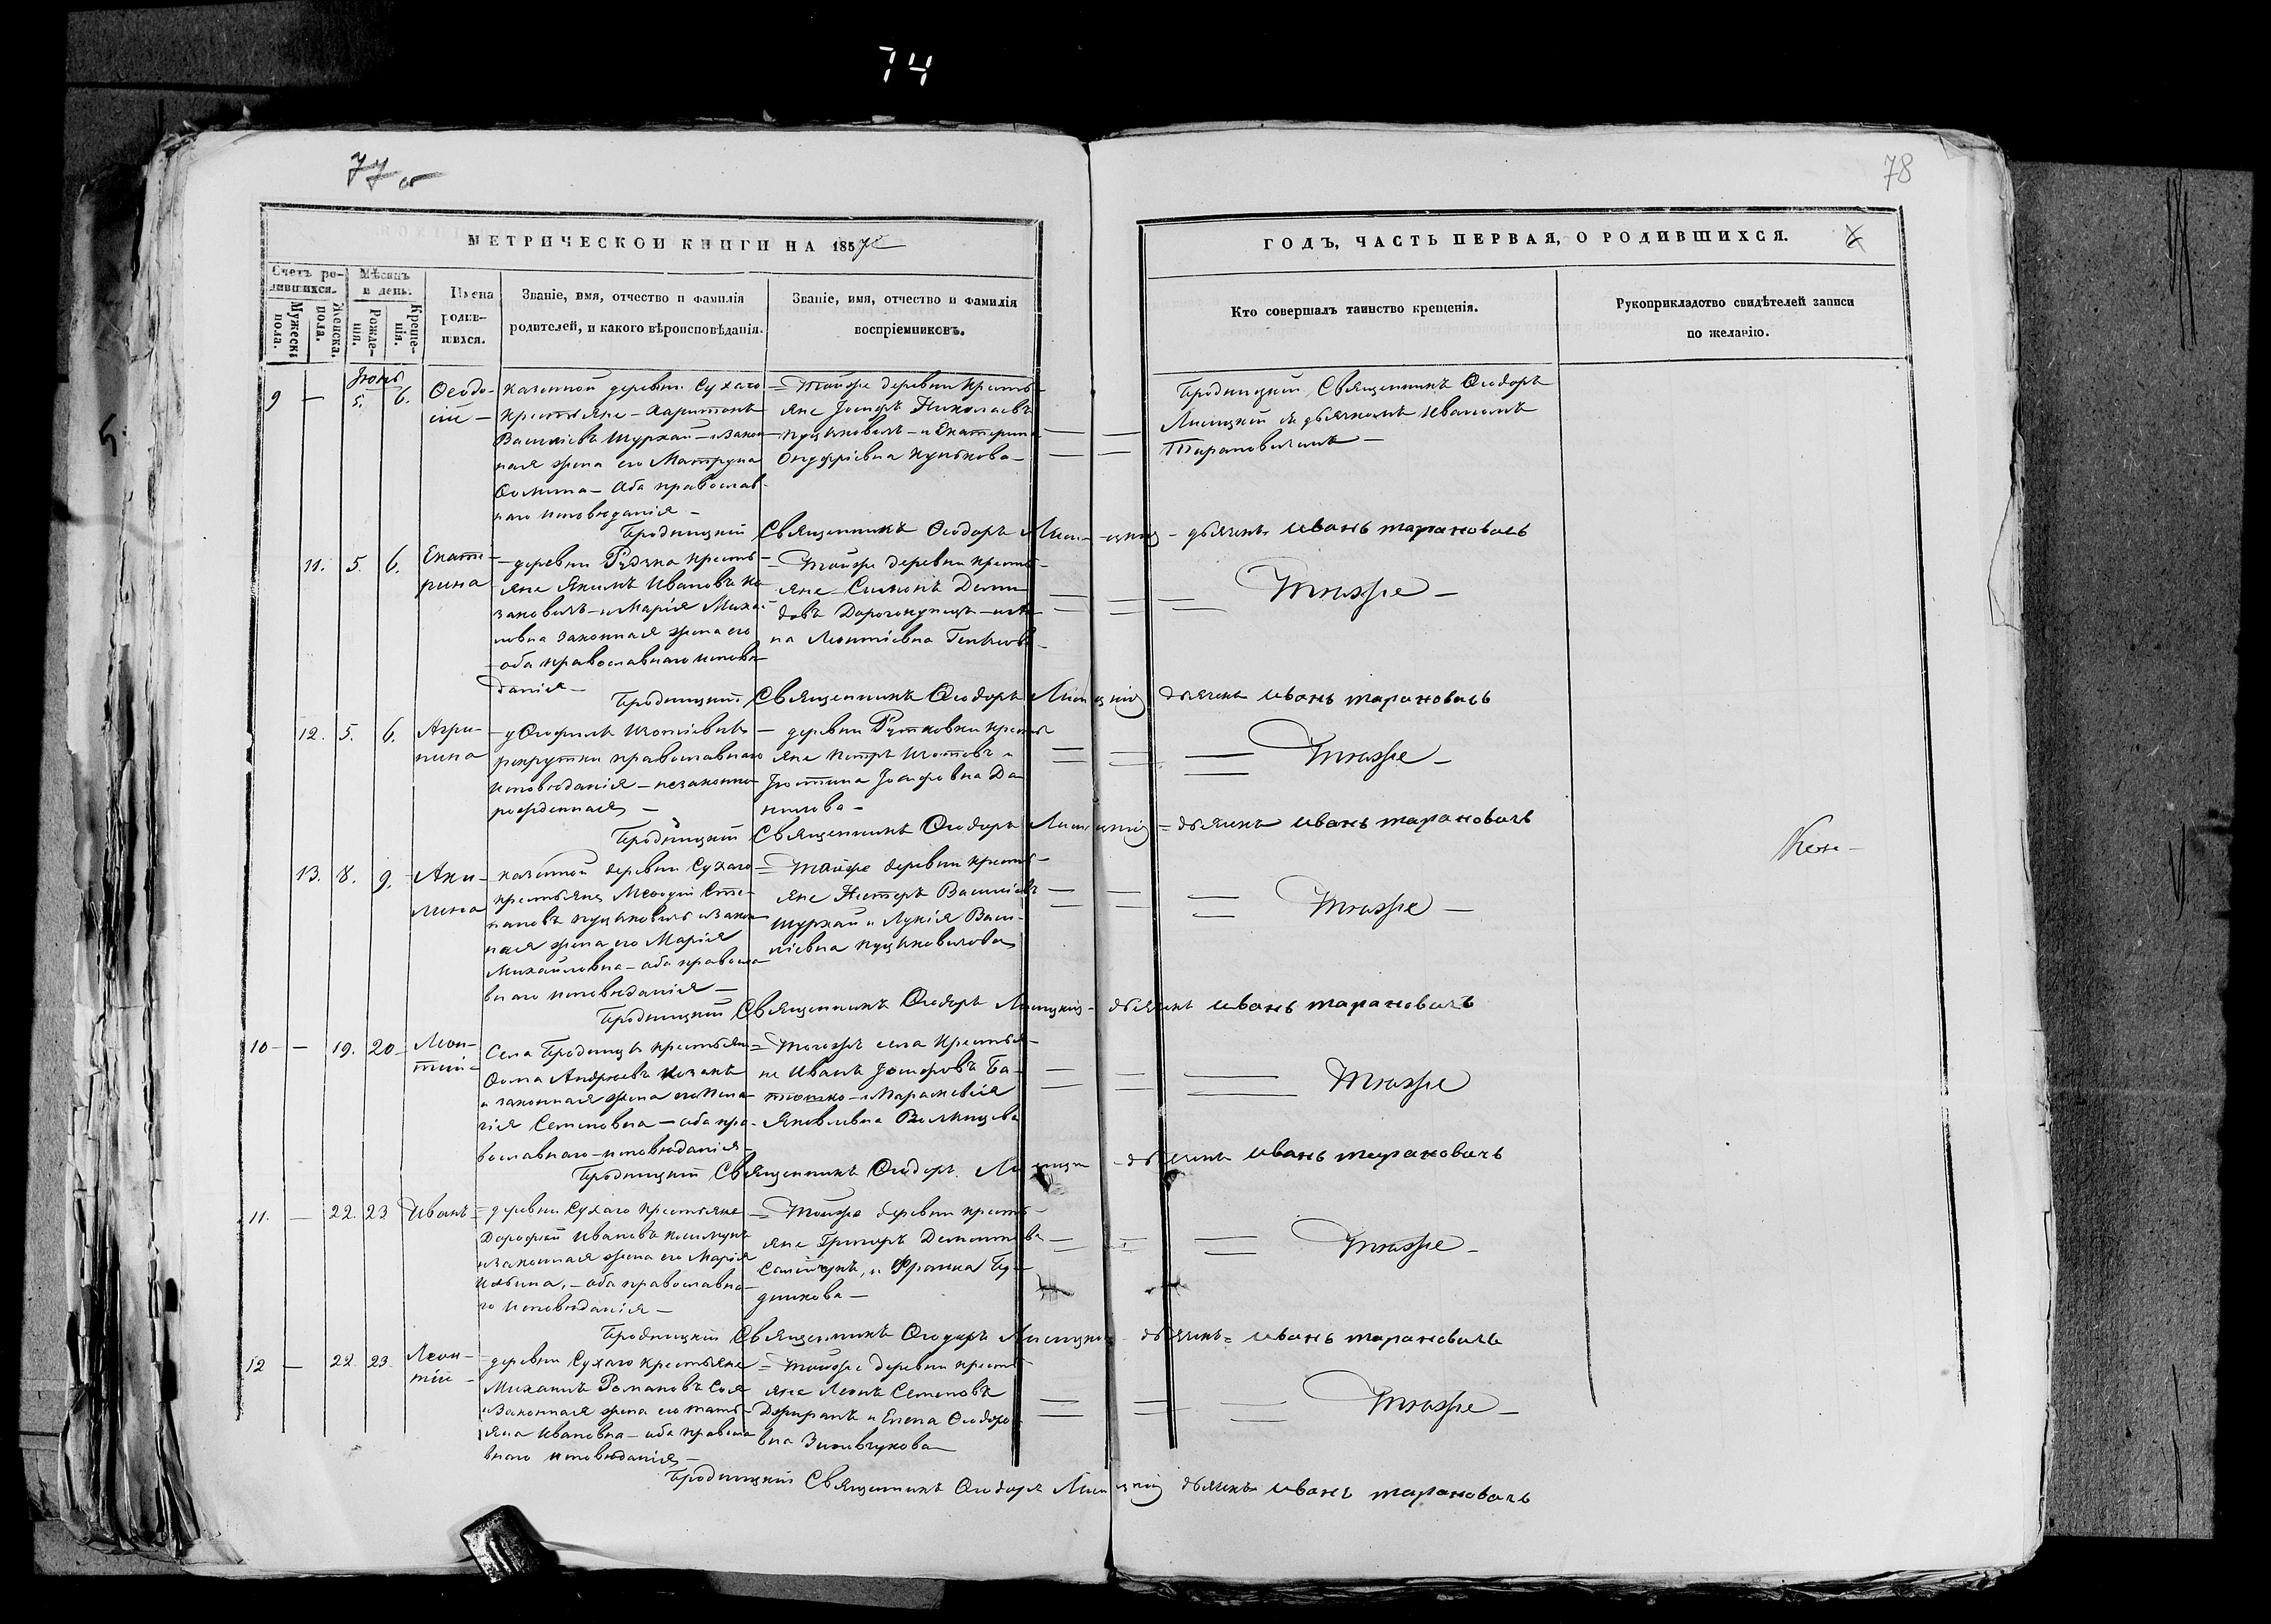 74
77 об
78
МЕТРИЧЕСКОЙ КНИГИ НА 1857й
ГОДЪ, ЧАСТЬ ПЕРВАЯ, О РОДИВШИХСЯ.
6
Счетъ ро-
дившихся.
Мужеска
пола.
Женска.
пола.
Мѣсяцъ
и день.
Рожде-
нія.
Креще-
нія.
Имена
родив-
шихся.
Званіе, имя, отчество и фамилія
родителей, и какого вѣроисповѣданія.
Званіе, имя, отчество и фамилія
воспріемниковъ.
Кто совершалъ таинство крещенія.
Рукоприкладство свидѣтелей записи
по желанію.
Іюнь
9 — 5. 6. Ѳеодо-
сій —
казенной деревни Сухаго
крестьяне — Харитонъ
Василіевъ Шурхай — и закон-
ная жена его Матруна
Ѳомина — оба православ-
наго исповѣданія —
= Тойже деревни кресть-
яне Іосифъ Николаевъ
— и Екатерина
Онуфріевна
Бродницкій Священникъ Ѳеодоръ
Лисицкій съ дьячкомъ Иваномъ
Тарановичемъ —
Бродницкій Священникъ Ѳеодоръ Лисицкій — дьячекъ иванъ тарановичъ
11. 5. 6. Екате-
рина
— деревни кресть-
яне Якимъ Ивановъ Ко-
заковичъ — и Марія Михай-
ловна законная жена его
— оба православнаго исповѣ-
данія —
— Тойже деревни кресть-
яне — Симонъ Деми-
довъ Дорогокупецъ — и Ан-
на Леонтіевна
Тоже —
Бродницкій Священникъ Ѳеодоръ Лисицкій дьячекъ иванъ тарановичъ
12. 5. 6. Агри-
пина
— у
рекрутки православнаго
исповѣданія — незаконно-
рожденная —
— деревни кресть-
яне Петръ и
Іустина Іосифовна Да-
нилова —
Тоже —
Бродницкій Священникъ Ѳеодоръ Лисицкій = дьячекъ иванъ тарановичъ
13. 8. 9. Аки-
лина
казенной деревни Сухаго
крестьяне Меѳодій Сте-
пановъ и закон-
ная жена его Марія
Михайловна — оба правосла-
внаго исповѣданія —
= Тойже деревни кресть-
яне Нестеръ Василіевъ
Шурхай и Лукія Васи-
ліевна
Тоже —
Бродницкій Священникъ Ѳеодоръ Лисицкій — дьячекъ иванъ тарановичъ
10 — — 19. 20 — Леон-
тій —
Села Бродницы крестьяне
Ѳома Андреевъ Козакъ
и законная жена его Пела-
гія Семеновна — оба пра-
вославнаго исповѣданія —
= Тогоже села Крестья-
не Иванъ Іосифовъ Ба-
— и Параскевія
Яковлевна
Тоже
Бродницкій Священникъ Ѳеодоръ Лисицкій — дьячекъ иванъ тарановичъ
11. — 22. 23 Иванъ
= деревни Сухаго Крестьяне
Дорофей Ивановъ
и законная жена его Марія
Ильина, — оба православна-
го исповѣданія —
= Тойже деревни кресть-
яне Григоръ
и

Тоже —
Бродницкій Священникъ Ѳеодоръ Лисицкій — дьячекъ = иванъ тарановичъ
12 — 22. 23. Леон-
тій —
деревни Сухаго крестьяне
Михаилъ Романовъ
и законная жена его Тать-
яна Ивановна — оба правосла-
внаго исповѣданія —
= Тойже деревни кресть-
яне Леонъ Семеновъ
и Елена Ѳеодоро-
вна
Тоже —
Бродницкій Священникъ Ѳеодоръ Лисицкій дьячекъ иванъ тарановичъ